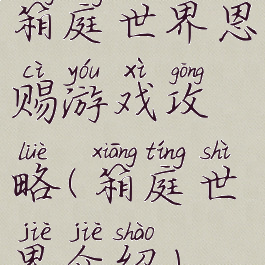 箱庭世界恩
cì yóu xì gōng
赐游戏攻
lüè xiāng tíng shì
略(箱庭世
jiè jiè shào
界介绍)